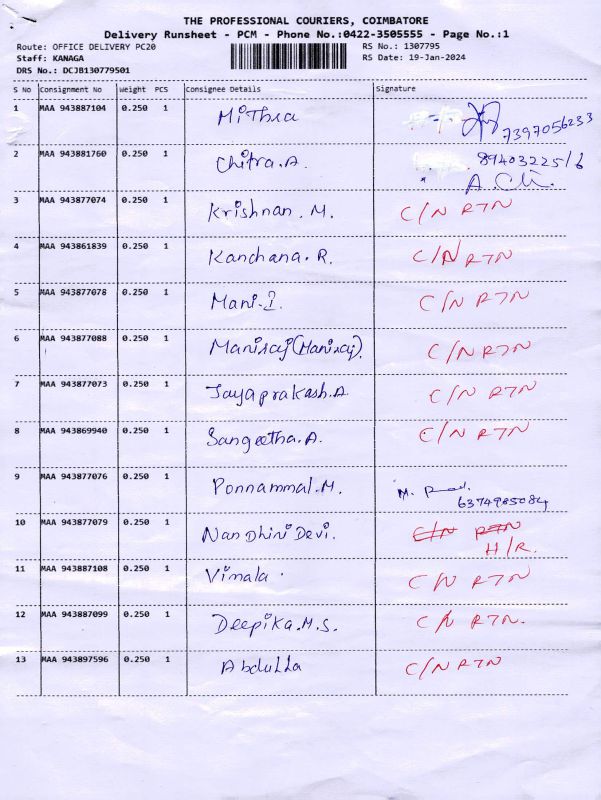 THE PROFESSIONAL COURIERS, COIMBATORE
Delivery Runsheet - PCM - Phone No.:0422-3505555 - Page No.:1
Route: OFFICE DELIVERY PC20 RS No.: 1307795
Staff: KANAGA RS Date: 19-Jan-2024
DRS No.: DCJB130779501
S No Consignment No Weight PCS Consignee Details Signature
1 MAA 943887104 0.250 1 Mithra 7397056233
2 MAA 943881760 0.250 1 Chitra.A. 89403225/6
A. Ch.
3 MAA 943877074 0.250 1 Krishnan. M. C/N RTN
4 MAA 943861839 0.250 1 Kanchana. R. C/N RTN
5 MAA 943877078 0.250 1 Mani.I. C/N RTN
6 MAA 943877088 0.250 1 Maniraj (Maniraj). C/N RTN
7 MAA 943877073 0.250 1 Jayaprakash.A C/N RTN
8 MAA 943869940 0.250 1 Sangeetha.A. C/N RTN
9 MAA 943877076 0.250 1 Ponnammal.M. M.
6374985084
10 MAA 943877079 0.250 1 Nandhini Devi. C/N RTN
H/R.
11 MAA 943887108 0.250 1 Vimala. C/N RTN
12 MAA 943887099 0.250 1 Deepika.M.S. C/N RTN.
13 MAA 943897596 0.250 1 Abdulla C/N RTN